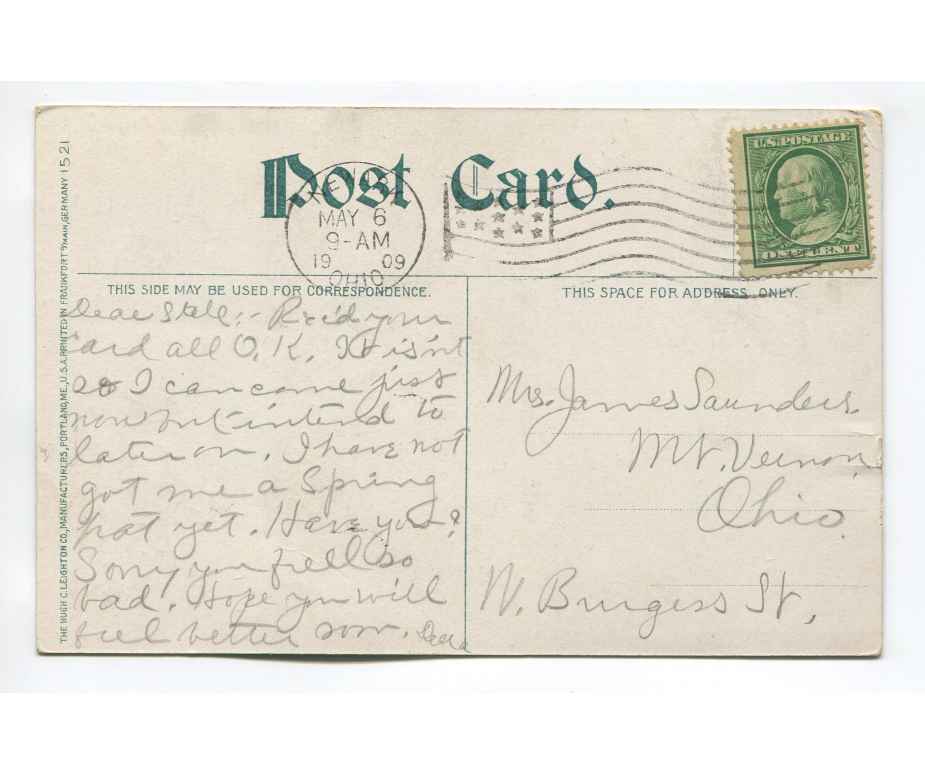 Post Card.
MAY 6
9-AM
19 09
OHIO
U.S. POSTAGE
ONE CENT
THIS SIDE MAY BE USED FOR CORRESPONDENCE.
THIS SPACE FOR ADDRESS ONLY.
THE HUGH C. LEIGHTON CO., MANUFACTURERS, PORTLAND, ME., U.S.A. PRINTED IN FRANKFORT O/MAIN, GERMANY 1521
Dear Stell:- Rec'd your
card all O.K. It isn't
so I can come just
now but intend to
later on. I have not
got me a Spring
hat yet. Have you?
Sorry you feell so
bad. Hope you will
feel better soon.
Mrs. James Saunders
Mt. Vernon
Ohio.
W. Burgess St.,